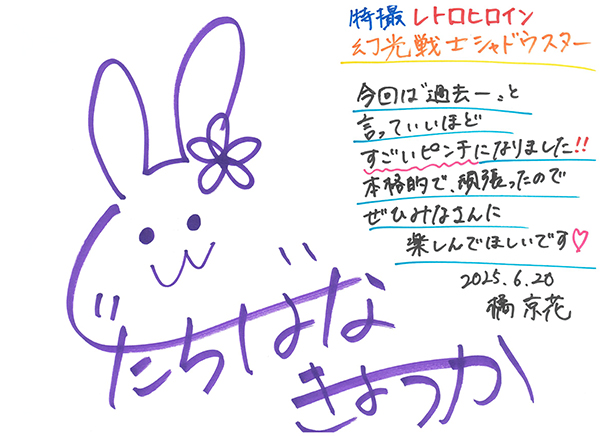 特撮レトロヒロイン
幻光戦士シャドウスター
今回は"過去一"と
言っていいほど
すごいピンチになりました!!
本格的で、頑張ったので
ぜひみなさんに
楽しんでほしいです♡
2025.6.20
橘 京花
たちばな
きょうか